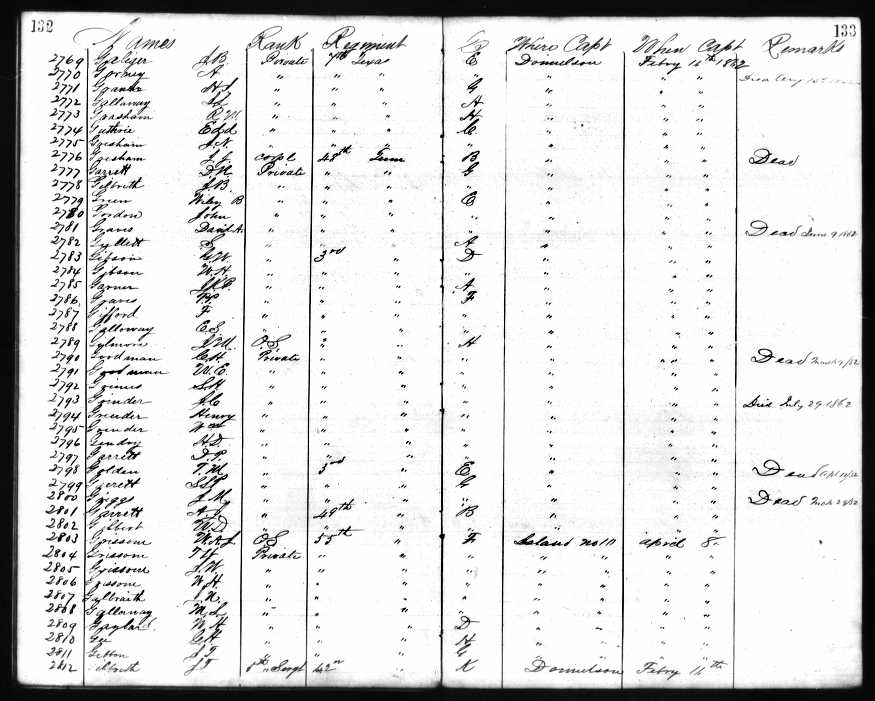 132 133
Names Rank Regiment Co Where Capt When Capt Remarks
2769 Galiger J.B. Private 7th Texas E Donnelson Febry 16th 1862
2770 Gorney A " " " " " "
2771 H.L. " " " G " " "
2772 Gallaway " " " A " " "
2773 Grasham R.M. " " " H " " "
2774 Guthrie Edd " " " C " " "
2775 Gresham J.N. " " " " " " "
2776 Gresham L.J. Corpl 48th Tenn B " " " Dead
2777 Garrett D.N. Private " " G " " "
2778 Gilbreth J.B. " " " " " " "
2779 Green Wiley B " " " C " " "
2780 Gordon John " " " " " " "
2781 Graves David A. " " " " " " " Dead June 9 1862
2782 " " " A " " "
2783 Gibson G.W. " 3rd " D " " "
2784 Gibson W.H. " " " " " " "
2785 Garner J.K.P. " " " A " " "
2786 Graves " " " F " " "
2787 Gifford F. " " " " " " "
2788 Galloway C.S. " " " " " " "
2789 Gilmore J.M. O.S. " " H " " "
2790 Goodman C.H. Private " " " " " " Dead March 9/62
2791 Goodman W.E. " " " " " " "
2792 Grimes S.H. " " " " " " "
2793 Grinder J.C. " " " " " " " Died July 29 1862
2794 Grinder Henry " " " " " " "
2795 Grinder Wm " " " " " " "
2796 H.D. " " " " " " "
2797 Garrett D.P. " " " " " " "
2798 Golden T.M. " 3rd " E " " " Dead
2799 " " " G " " "
2800 Griggs J.M. " " " " " " " Dead March 28/62
2801 Garrett A.J. " 48th " B " " "
2802 Gilbert W.D. " " " " " " "
2803 Grissom W.A.J. O.S. 55th " F Island No 10 April 8
2804 Grissom T.Y. Private " " " " " "
2805 Grissom J.W. " " " " " " "
2806 Grissom W.H. " " " " " " "
2807 Galbraith J.N. " " " " " " "
2808 Gallaway M.L. " " " " " " "
2809 Gaylard W.H. " " " D " " "
2810 Gee C.H. " " " H " " "
2811 Gibbon J.T. " " " G " " "
2812 Gilbreth J.T. 5th Sergt 42n " K Donnelson Febry 16th